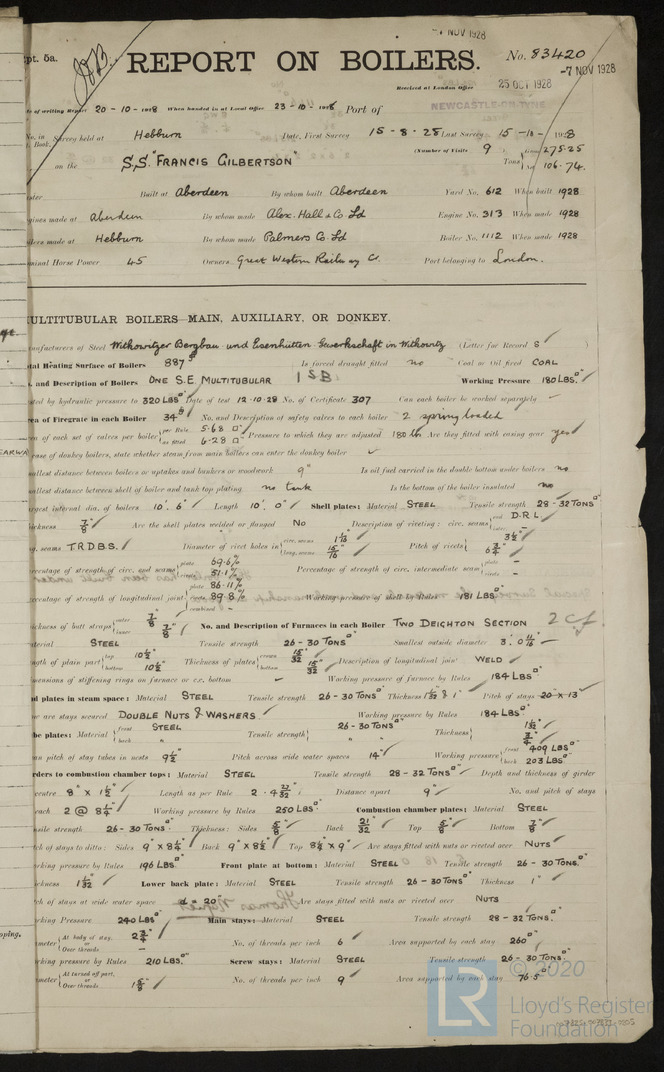 -7 NOV 1928
pt. 5a.
REPORT ON BOILERS.
No. 83420
-7 NOV 1928
Received at London Office 25 OCT 1928
NEWCASTLE-ON-TYNE
of writing Report 20-10-1928 When handed in at Local Office 23-10-1928 Port of
No. in Survey held at Hebburn Date, First Survey 15-8-28 Last Survey 15-10-1928
Book. (Number of Visits 9 Gross 275.25
on the S.S. "FRANCIS GILBERTSON" Tons Net 106.74
Built at Aberdeen By whom built Aberdeen Yard No. 612 When built 1928
gines made at Aberdeen By whom made Alex. Hall & Co. Ld Engine No. 313 When made 1928
ilers made at Hebburn By whom made Palmers Co Ld Boiler No. 1112 When made 1928
minal Horse Power 45 Owners Great Western Railway Co. Port belonging to London.
ULTITUBULAR BOILERS MAIN, AUXILIARY, OR DONKEY.
nufacturers of Steel Witkowitzer Bergbau und Eisenhütten Gewerkschaft in Witkowitz (Letter for Record S
tal Heating Surface of Boilers 887 Is forced draught fitted no Coal or Oil fired COAL
and Description of Boilers ONE S.E. MULTITUBULAR 1 SB Working Pressure 180 LBS.
ted by hydraulic pressure to 320 LBS Date of test 12.10.28 No. of Certificate 307 Can each boiler be worked separately -
rea of Firegrate in each Boiler 34 No. and Description of safety valves to each boiler 2 spring loaded
ea of each set of valves per boiler per Rule 5.68 as fitted 6.28 Pressure to which they are adjusted 180 lb Are they fitted with easing gear yes
case of donkey boilers, state whether steam from main boilers can enter the donkey boiler
allest distance between boilers or uptakes and bunkers or woodwork 9" Is oil fuel carried in the double bottom under boilers no
allest distance between shell of boiler and tank top plating no tank Is the bottom of the boiler insulated no
rgest internal dia. of boilers 10'. 6" Length 10'. 0" Shell plates: Material STEEL Tensile strength 28-32 TONS
hickness 7/8" Are the shell plates welded or flanged No Description of riveting: circ. seams end D.R.L.
g. seams T.R.D.B.S. Diameter of rivet holes in circ. seams 1 1/16 long. seams 15/16 Pitch of rivets 3 1/2" 6 3/4"
rcentage of strength of circ. end seams plate 69.6% rivets 51.1% Percentage of strength of circ. intermediate seam plate - rivets -
rcentage of strength of longitudinal joint plate 86.11% rivets 89.8% combined - Working pressure of shell by Rules 181 LBS
ickness of butt straps outer 7/8" inner 7/8" No. and Description of Furnaces in each Boiler TWO DEIGHTON SECTION 2 cf
aterial STEEL Tensile strength 26-30 TONS Smallest outside diameter 3'. 0 11/16"
ngth of plain part top 10 1/2" bottom 10 1/2" Thickness of plates crown 15/32 bottom 15/32 Description of longitudinal joint WELD
mensions of stiffening rings on furnace or c.c. bottom - Working pressure of furnace by Rules 184 LBS
d plates in steam space: Material STEEL Tensile strength 26-30 TONS Thickness 1 1/32 & 1" Pitch of stays 20" x 13"
w are stays secured DOUBLE NUTS & WASHERS Working pressure by Rules 184 LBS
be plates: Material front STEEL back " Tensile strength 26-30 TONS " Thickness 3/4"
an pitch of stay tubes in nests 9 1/2" Pitch across wide water spaces 14" Working pressure front 409 LBS back 203 LBS
rders to combustion chamber tops: Material STEEL Tensile strength 28-32 TONS Depth and thickness of girder
centre 8" x 1 1/2" Length as per Rule 2'. 4 23/32" Distance apart 9" No. and pitch of stays
each 2 @ 8 1/4" Working pressure by Rules 250 LBS. Combustion chamber plates: Material STEEL
nsile strength 26-30 TONS. Thickness: Sides 5/8" Back 21/32 Top 5/8" Bottom 7/8"
ch of stays to ditto: Sides 9" x 8 1/4" Back 9" x 8 1/2" Top 8 1/4" x 9" Are stays fitted with nuts or riveted over NUTS
rking pressure by Rules 196 LBS Front plate at bottom: Material STEEL Tensile strength 26-30 TONS.
ickness 1 1/32 Lower back plate: Material STEEL Tensile strength 26-30 TONS Thickness 1"
ch of stays at wide water space d = 20" Are stays fitted with nuts or riveted over NUTS
rking Pressure 240 LBS Main stays: Material STEEL Tensile strength 28-32 TONS.
meter At body of stay, or Over threads 2 3/4" - No. of threads per inch 6 Area supported by each stay 260
rking pressure by Rules 210 LBS. Screw stays: Material STEEL Tensile strength 26-30 TONS.
meter At turned off part, or Over threads 1 5/8" No. of threads per inch 9 Area supported by each stay 76.5
© 2020
LR Lloyd's Register
Foundation